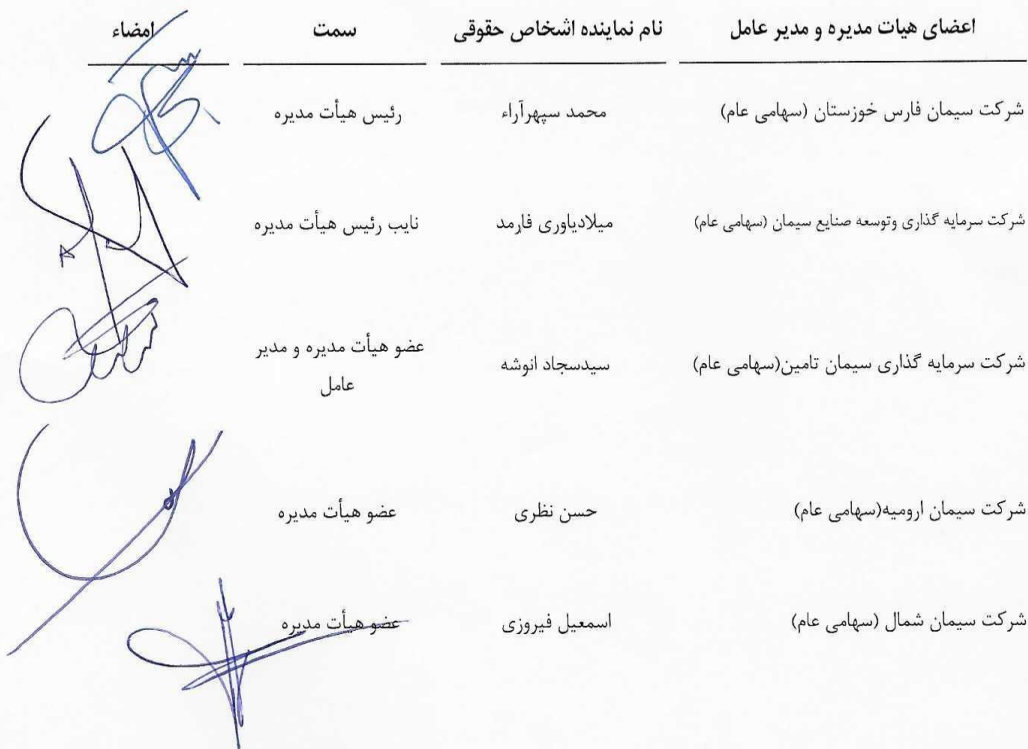 اعضای هیات مدیره و مدیر عامل نام نماینده اشخاص حقوقی سمت امضاء
شرکت سیمان فارس خوزستان (سهامی عام) محمد سپهرآراء رئیس هیأت مدیره
شرکت سرمایه گذاری وتوسعه صنایع سیمان (سهامی عام) میلادیاوری فارمد نایب رئیس هیأت مدیره
شرکت سرمایه گذاری سیمان تامین(سهامی عام) سیدسجاد انوشه عضو هیأت مدیره و مدیر
عامل
شرکت سیمان ارومیه(سهامی عام) حسن نظری عضو هیأت مدیره
شرکت سیمان شمال (سهامی عام) اسمعیل فیروزی عضو هیأت مدیره